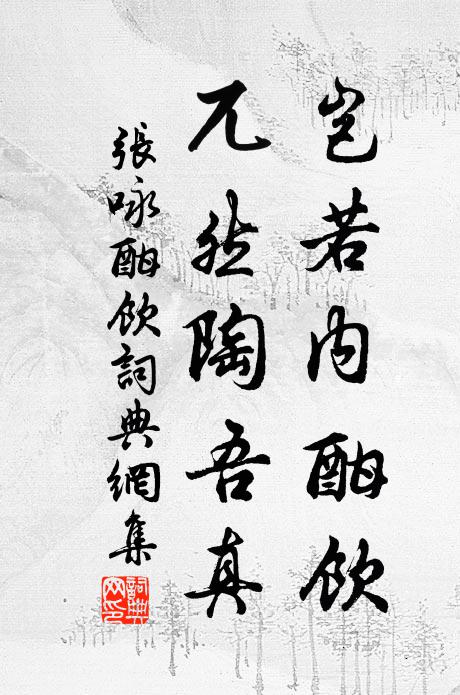 豈若内酣飲
兀然陶吾真
張咏酣飲詞典網集
詞典网印